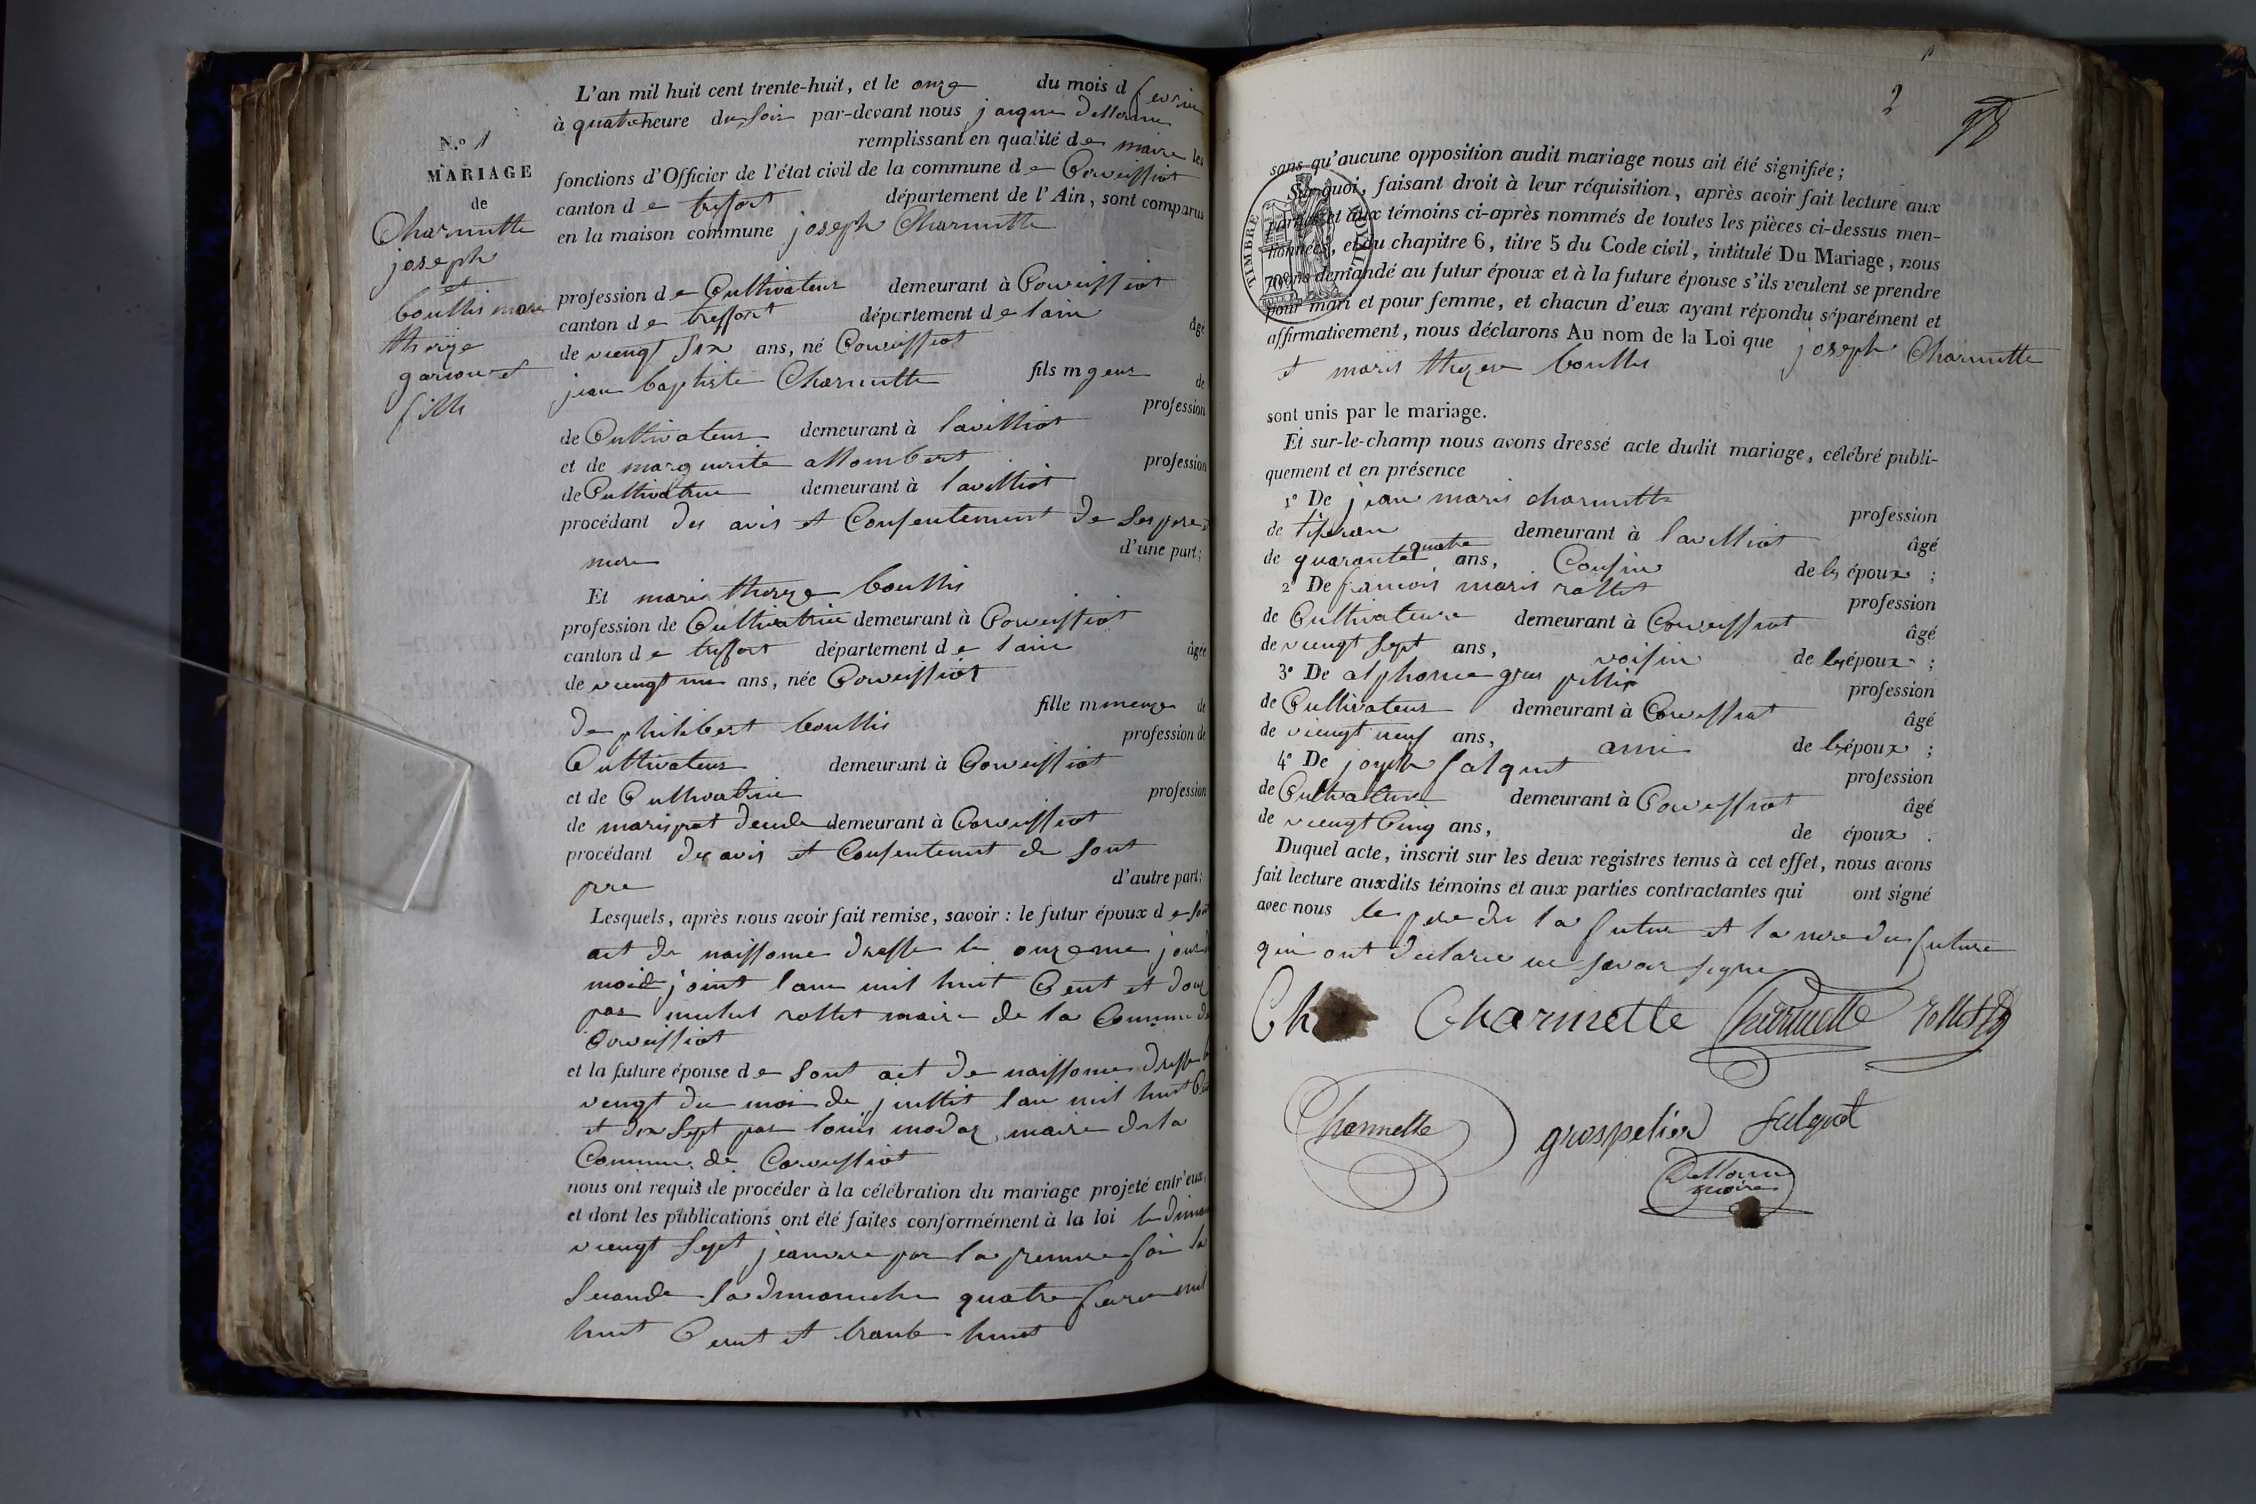 N.º 1
MARIAGE
de
Charmette
joseph
et
bouttis marie
therèze
garcon et
fille
L'an mil huit cent trente-huit, et le onze du mois d fevrier
à quatreheure du soir par-devant nous jacque
remplissant en qualité de maire les
fonctions d'Officier de l'état civil de la commune de Corveissiat
canton de treffort département de l'Ain, sont comparus
en la maison commune joseph Charmette
profession de Cultivateur demeurant à Corveissiat
canton de treffort département de lain âgé
de viengt six ans, né Corveissiat
fils mgeur de
jean baptiste Charmette profession
de Cultivateur demeurant à lavilliat
et de marguerite allombert profession
de Cultivatrice demeurant à lavilliat
procédant des avis et Consentement de ses pere et
mere d'une part;
Et marie thereze bouttis
profession de Cultivatrice demeurant à Corveissiat
canton de treffort département de lain âgée
de viengt un ans, née Corveissiat
fille mmeure de
de philibert bouttis profession de
Cultivateur demeurant à Corveissiat
et de Cultivatrice profession
de demeurant à Corveissiat
procédant des avis et Consentement de sont
pere d'autre part;
Lesquels, après nous avoir fait remise, savoir : le futur époux de sont
act de naissance dresse le onzeme jour d
mois de joint lan mil huit Cent et douz
par michel rollet maire de la Commune de
Corveissiat
et la future épouse de sont act de naissance dresse le
vengt du mois de juillit lan mil huit Cent
et dix sept par louis modaz maire de la
Commune de Corveissiat
nous ont requis de procéder à la célébration du mariage projeté entr'eux,
et dont les publications ont été faites conformément à la loi le diman
viengt sept jeanvie par la premire foi la
seconde la dimanche quatre fevrie mil
huit Cent et trante huit
2
98
sans qu'aucune opposition audit mariage nous ait été signifiée;
Sur quoi, faisant droit à leur réquisition, après avoir fait lecture aux
parties et aux témoins ci-après nommés de toutes les pièces ci-dessus men-
tionnées, et du chapitre 6, titre 5 du Code civil, intitulé Du Mariage, nous
avons demandé au futur époux et à la future épouse s'ils veulent se prendre
pour mari et pour femme, et chacun d'eux ayant répondu séparément et
affirmativement, nous déclarons Au nom de la Loi que joseph Charmette
et marie therezee bouttis
TIMBRE ROYAL
sont unis par le mariage.
Et sur-le-champ nous avons dressé acte dudit mariage, célébré publi-
quement et en présence
1º De jean marie charmette profession
de tiseran demeurant à lavilliat âgé
de quarante quatre ans, Cousin de les époux ;
2º De francois marie rollet profession
de Cultivateure demeurant à Corveissiat âgé
de viengt sept ans, voisin de les époux ;
3º De alphonce gros pellie profession
de Cultivateur demeurant à Corveissiat âgé
de viengt neuf ans, ami de les époux ;
4º De joseph falquet profession
de Cultivateur demeurant à Corveissiat âgé
de viengt Cinq ans, de époux .
Duquel acte, inscrit sur les deux registres tenus à cet effet, nous avons
fait lecture auxdits témoins et aux parties contractantes qui ont signé
avec nous le pere de la future et la mere du future
qui ont declaree ne savoir signe
Ch Charmette Charmette rollet
Charmette grospelier falquet
maire